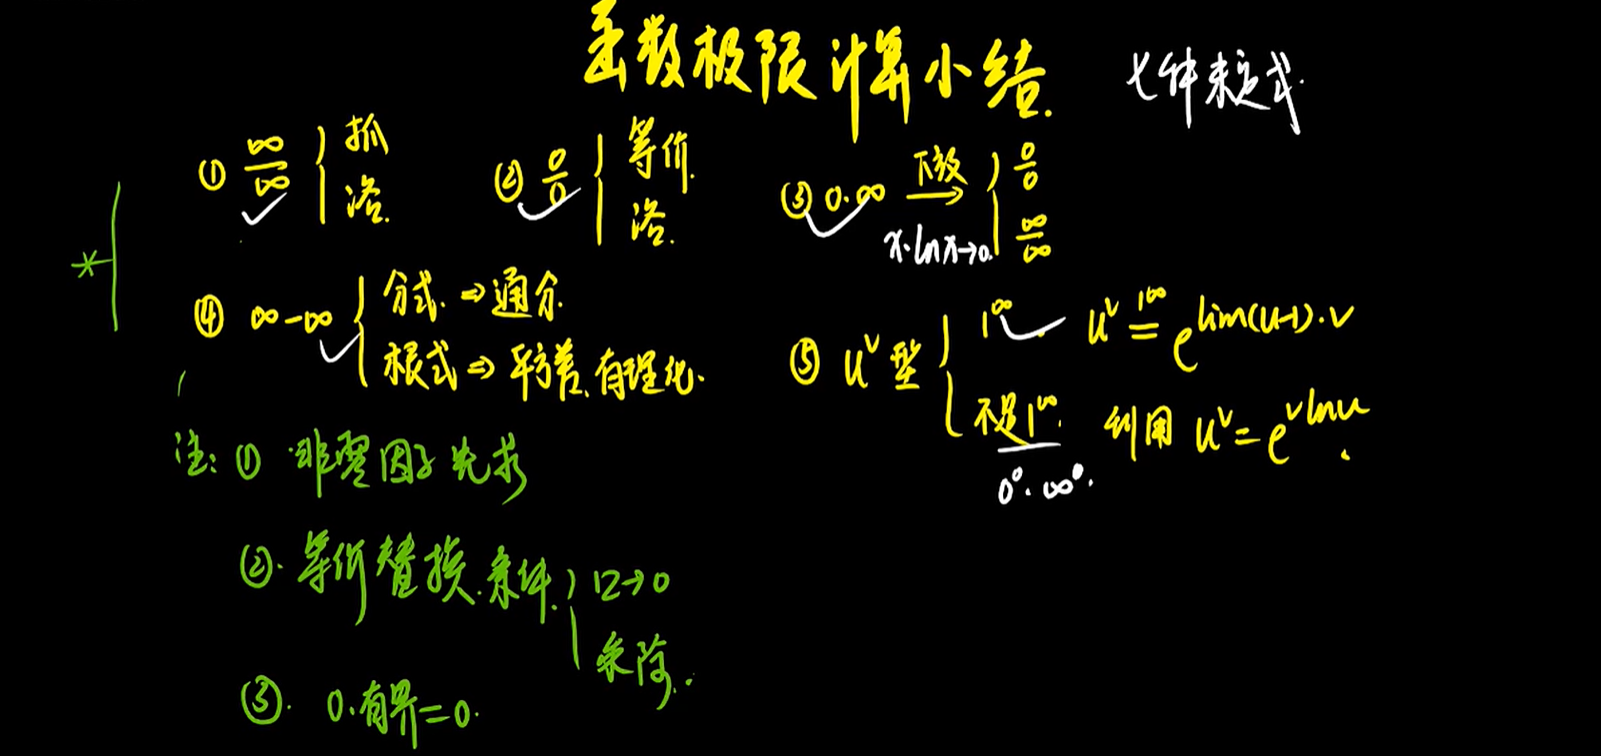 函数极限计算小结. 七种未定式.
① ∞/∞ { 抓 洛. ② 0/0 { 等价. 洛. ③ 0·∞ 下放→ { 0/0 ∞/∞
x·lnx→0.
④ ∞-∞ { 分式. ⇒通分. 根式⇒平方差.有理化.
⑤ u^v 型 { 1^∞. u^v =(1^∞) e^{lim(u-1)·v}
不是1^∞. 利用 u^v = e^{vlnu}.
0^0. ∞^0.
注: ① 非零因子先求
②. 等价替换.条件. { 口→0
乘除.
③. 0.有界=0.